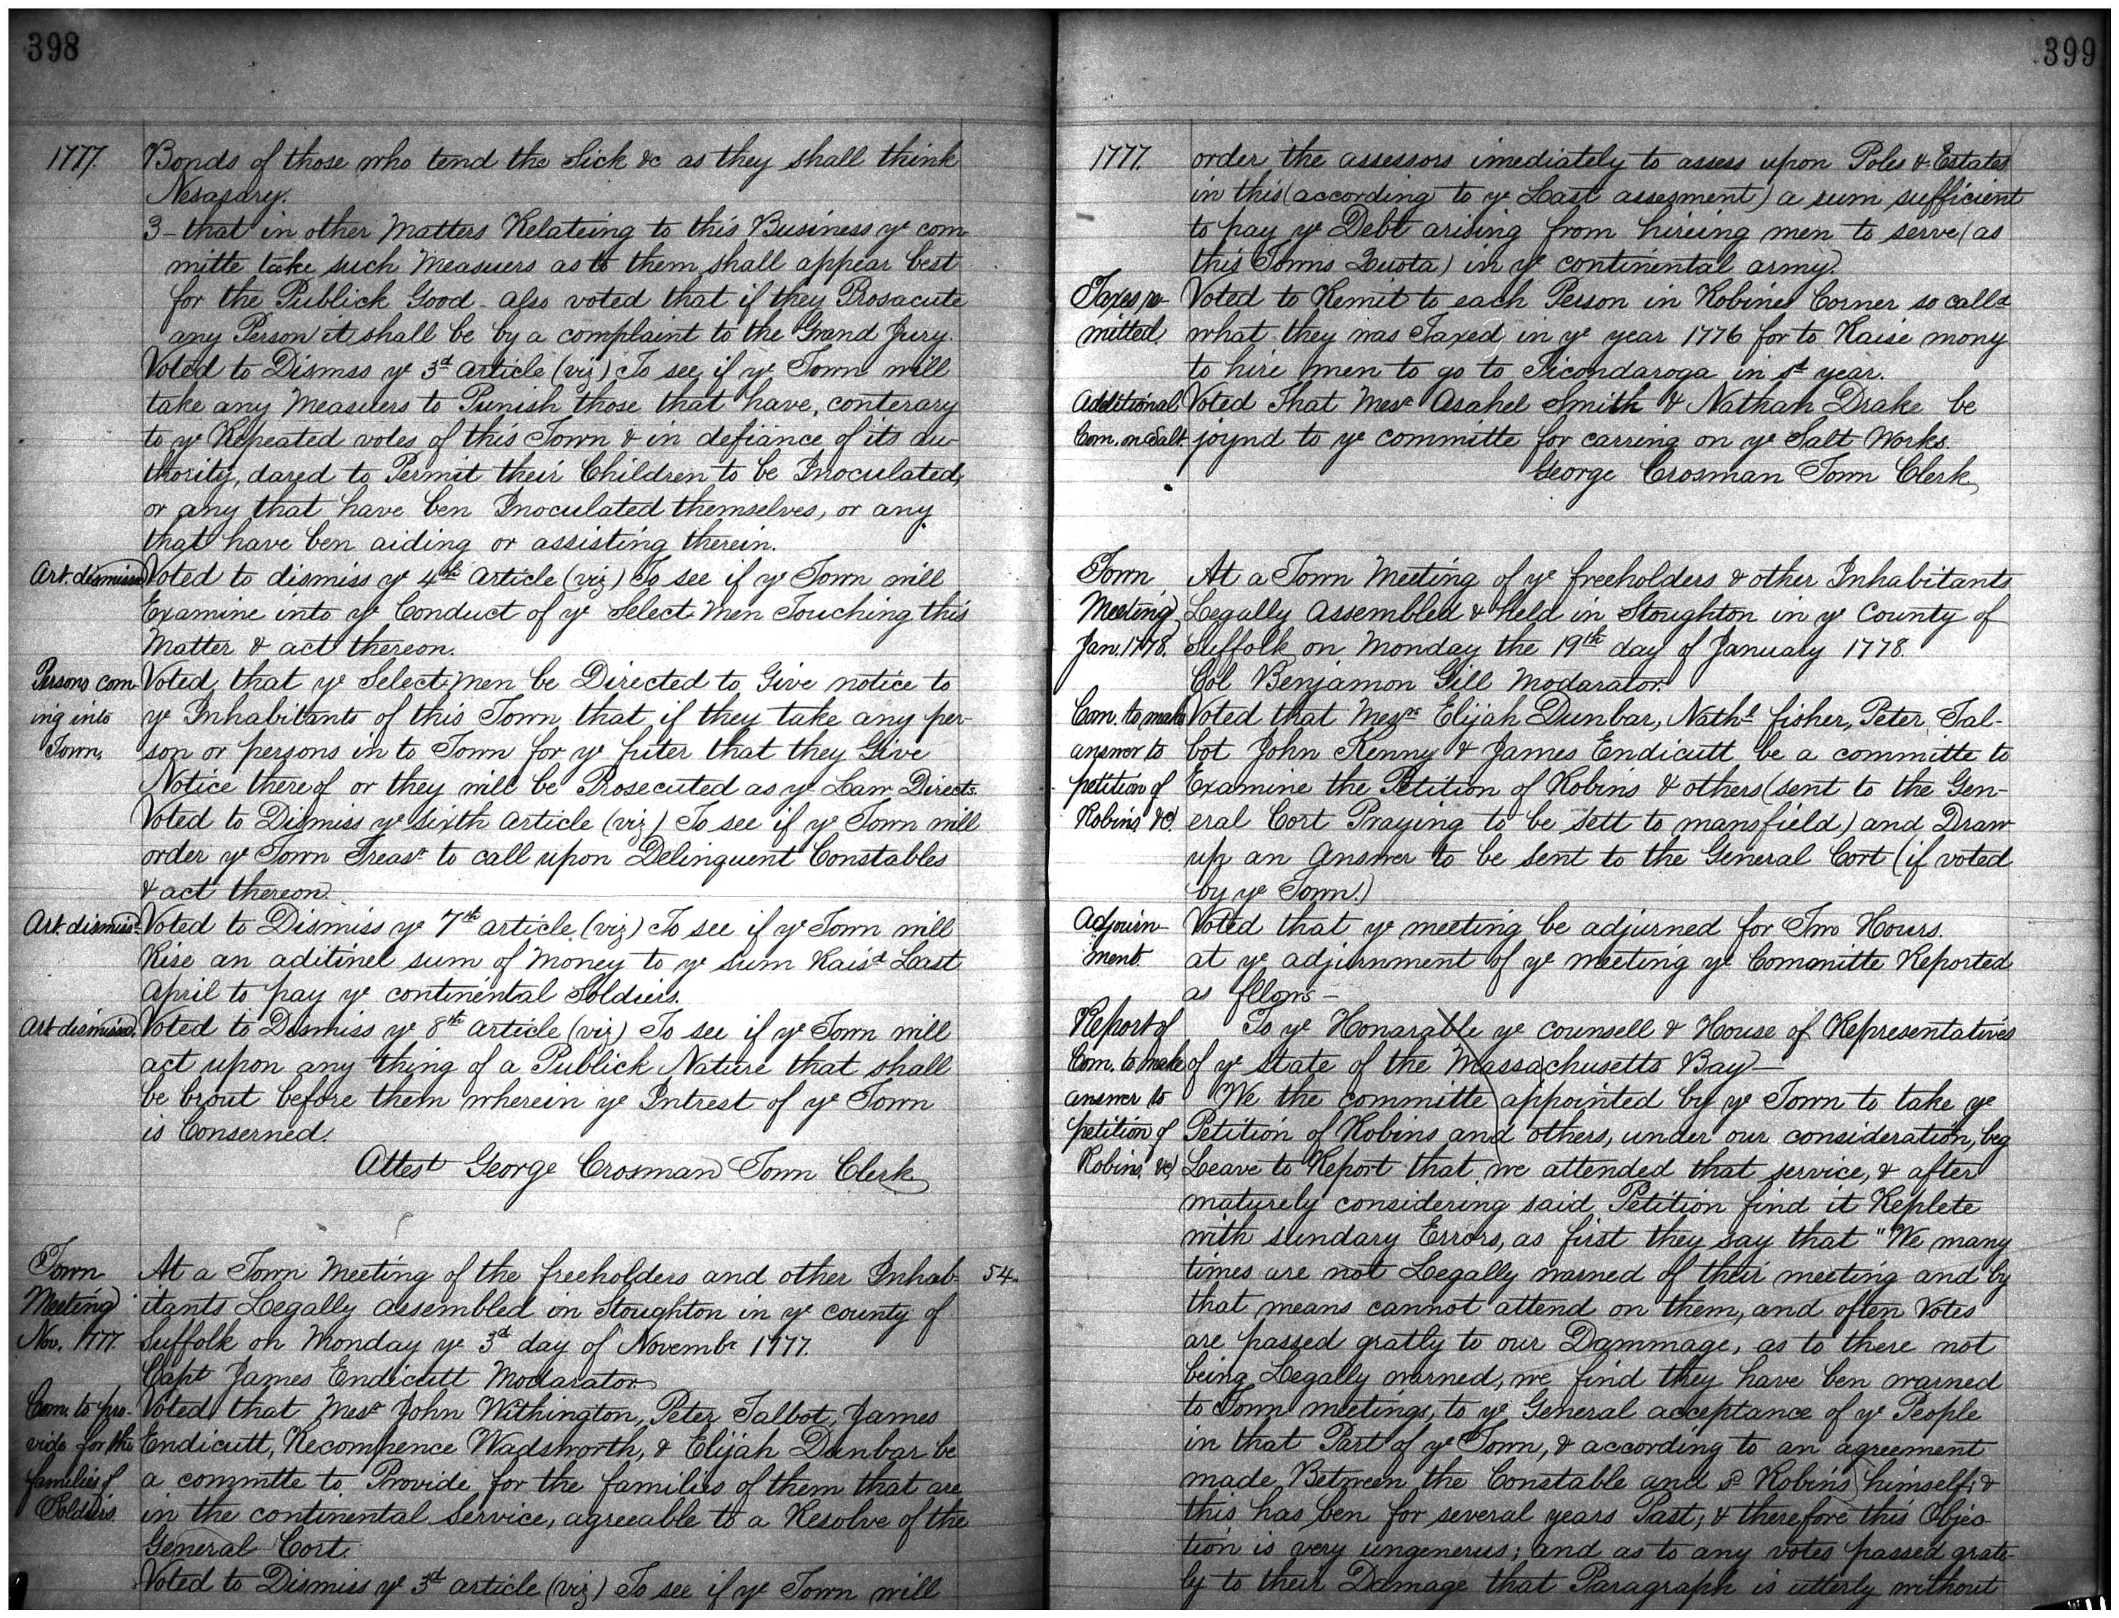 398
1777. Bonds of those who tend the Sick &c as they shall think
Nesasary.
3 - that in other Matters Relateing to this Business ye com
mitte take such Measuers as to them shall appear best
for the Publick Good - also voted that if they Prosacute
any Person it shall be by a complaint to the Grand Jury.
Voted to Dismss ye 3d article (viz) To see if ye Town will
take any Measuers to Punish those that have, conterary
to ye Repeated votes of this Town & in defiance of its au-
thority, dared to Permit their Children to be Inoculated,
or any that have ben Inoculated themselves, or any
that have ben aiding or assisting therein.
Art. dismissd Voted to dismiss ye 4th article (viz) To see if ye Town will
Examine into ye Conduct of ye Select Men Touching this
Matter & act thereon.
Persons com- Voted that ye Select men be Directed to Give notice to
ing into ye Inhabitants of this Town that if they take any per-
Town. son or persons in to Town for ye futer that they Give
Notice thereof or they will be Prosecuted as ye Law Directs.
Voted to Dismiss ye sixth article (viz) To see if ye Town will
order ye Town Treasr to call upon Delinquent Constables
& act thereon.
Art. dismissd. Voted to Dismiss ye 7th article (viz) To see if ye Town will
Rise an aditinel sum of Money to ye sum Raisd Last
April to pay ye continental Soldiers.
Art dismissd. Voted to Dismiss ye 8th article (viz) To see if ye Town will
act upon any thing of a Publick Nature that shall
be brout before them wherein ye Intrest of ye Town
is Conserned.
Attest George Crosman Town Clerk
Town At a Town Meeting of the freeholders and other Inhab- 54.
Meeting itants Legally assembled in Stoughton in ye county of
Nov. 1777. Suffolk on Monday ye 3d day of Novembr 1777.
Capt James Endicutt Modarator
Com. to pro- Voted that Mesr John Withington, Peter Talbot, James
vide for the Endicutt, Recompence Wadsworth, & Elijah Dunbar be
families of a committe to Provide for the families of them that are
Soldiers. in the continental Service, agreeable to a Resolve of the
General Cort.
Voted to Dismiss ye 3d article (viz) To see if ye Town will
399
1777. order the assessors imediately to assess upon Poles & Estates
in this (according to ye Last assesment) a sum sufficient
to pay ye Debt arising from hireing men to serve (as
this Towns Quota) in ye continental army.
Taxes re- Voted to Remit to each Person in Robins Corner so calld
mitted. what they was Taxed in ye year 1776 for to Raise mony
to hire men to go to Ticondaroga in sd year.
Additional Voted That Mesr Asahel Smith & Nathan Drake be
Com. on Salt joynd to ye committe for carring on ye Salt Works.
George Crosman Town Clerk
Town At a Town Meeting of ye freeholders & other Inhabitants
Meeting Legally assembled & held in Stoughton in ye County of
Jan. 1778. Suffolk on Monday the 19th day of January 1778
Col Benjamon Gill Modarator.
Com. to make Voted that Messrs Elijah Dunbar, Nathl fisher, Peter Tal-
answer to bot John Kenny & James Endicutt be a committe to
petition of Examine the Petition of Robins & others (sent to the Gen-
Robins &c. eral Cort Praying to be sett to mansfield) and Draw
up an answer to be sent to the General Cort (if voted
by ye Town.)
Adjourn- Voted that ye meeting be adjurned for Two Hours.
ment. at ye adjurnment of ye meeting ye Committe Reported
as fllows -
Report of To ye Honarable ye counsell & House of Representatives
Com. to make of ye state of the Massachusetts Bay -
answer to We the committe appointed by ye Town to take ye
petition of Petition of Robins and others, under our consideration, beg
Robins, &c, Leave to Report that we attended that service, & after
maturely considering said Petition find it Replete
with sundary Errors, as first they say that "We many
times are not Legally warned of their meeting and by
that means cannot attend on them, and often Votes
are passed gratly to our Dammage, as to there not
being Legally warned, we find they have ben warned
to Town meetings, to ye General acceptance of ye People
in that Part of ye Town, & according to an agreement
made Between the Constable and sd Robins himself; &
this has ben for several years Past; & therefore this Objec-
tion is very ungenerus; and as to any votes passed grate-
ly to their Damage that Paragraph is utterly without